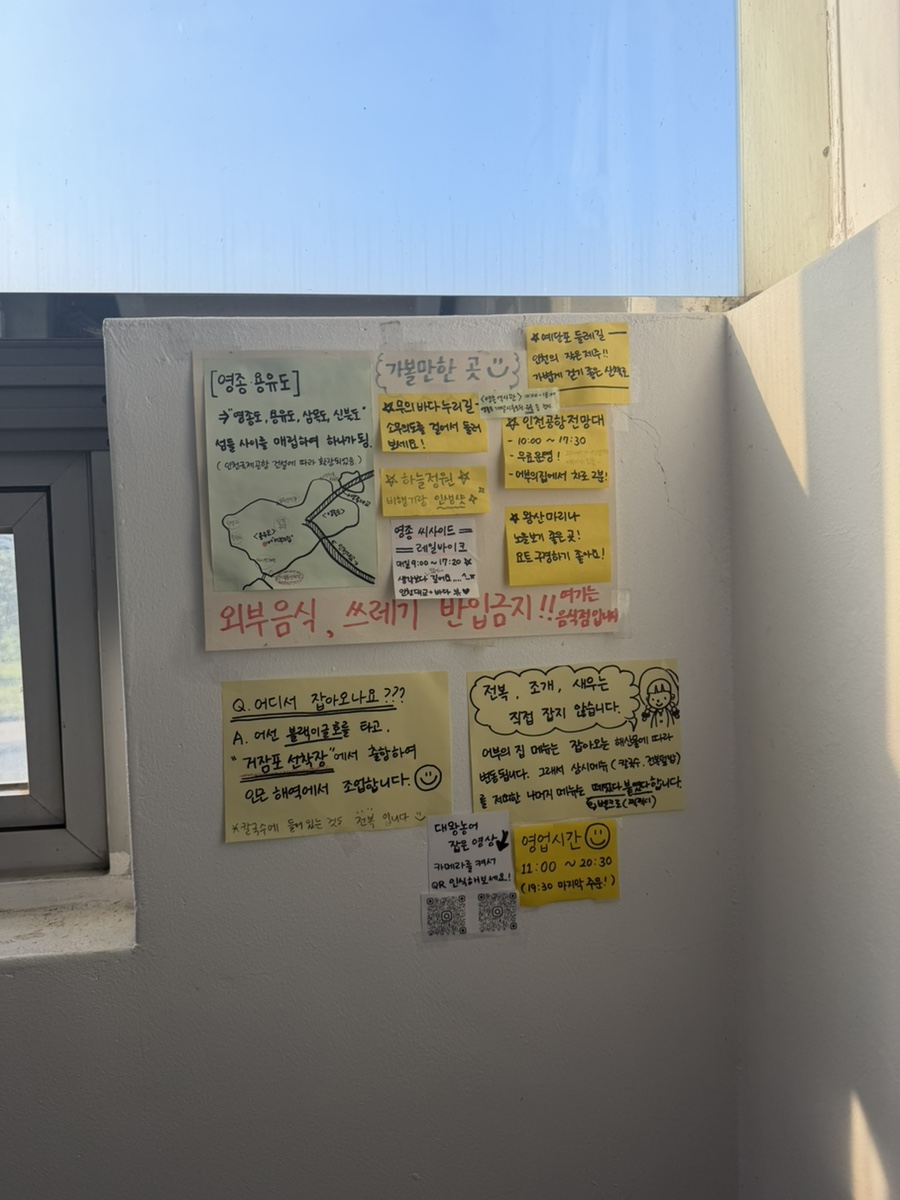 [영종·용유도]
⇒"영종도, 용유도, 삼목도, 신불도"
섬들 사이를 매립하여 하나가 됨.
(인천국제공항 건설에 따라 확장되었음)
가볼만한 곳
☆예단포 둘레길
인천의 작은 제주!!
가볍게 걷기 좋은 산책로
☆무의바다누리길
소무의도를 걸어서 둘러
보세요!
☆인천공항전망대
- 10:00 ~ 17:30
- 무료운영!
- 어부의집에서 차로 2분!
☆하늘정원☆
비행기랑 인생샷
영종 씨사이드
레일바이크
매일 9:00 ~ 17:20
생각보다 길어요....
인천대교+바다
☆왕산마리나
노을보기 좋은 곳!
요트 구경하기 좋아요!
외부음식, 쓰레기 반입금지!!
여기는
음식점입니다
Q. 어디서 잡아오나요???
A. 어선 블랙이글호를 타고.
"거잠포 선착장"에서 출항하여
인근 해역에서 조업합니다.
※칼국수에 들어있는 것도 전복입니다
전복, 조개, 새우는
직접 잡지 않습니다.
어부의 집 메뉴는 잡아오는 해산물에 따라
변동됩니다. 그래서 상시메뉴(칼국수, 전복덮밥)
를 제외한 나머지 메뉴는 떼었다 붙였다 합니다.
대왕농어
잡은 영상
카메라를 켜서
QR 인식해보세요!
영업시간
11:00 ~ 20:30
(19:30 마지막 주문!)